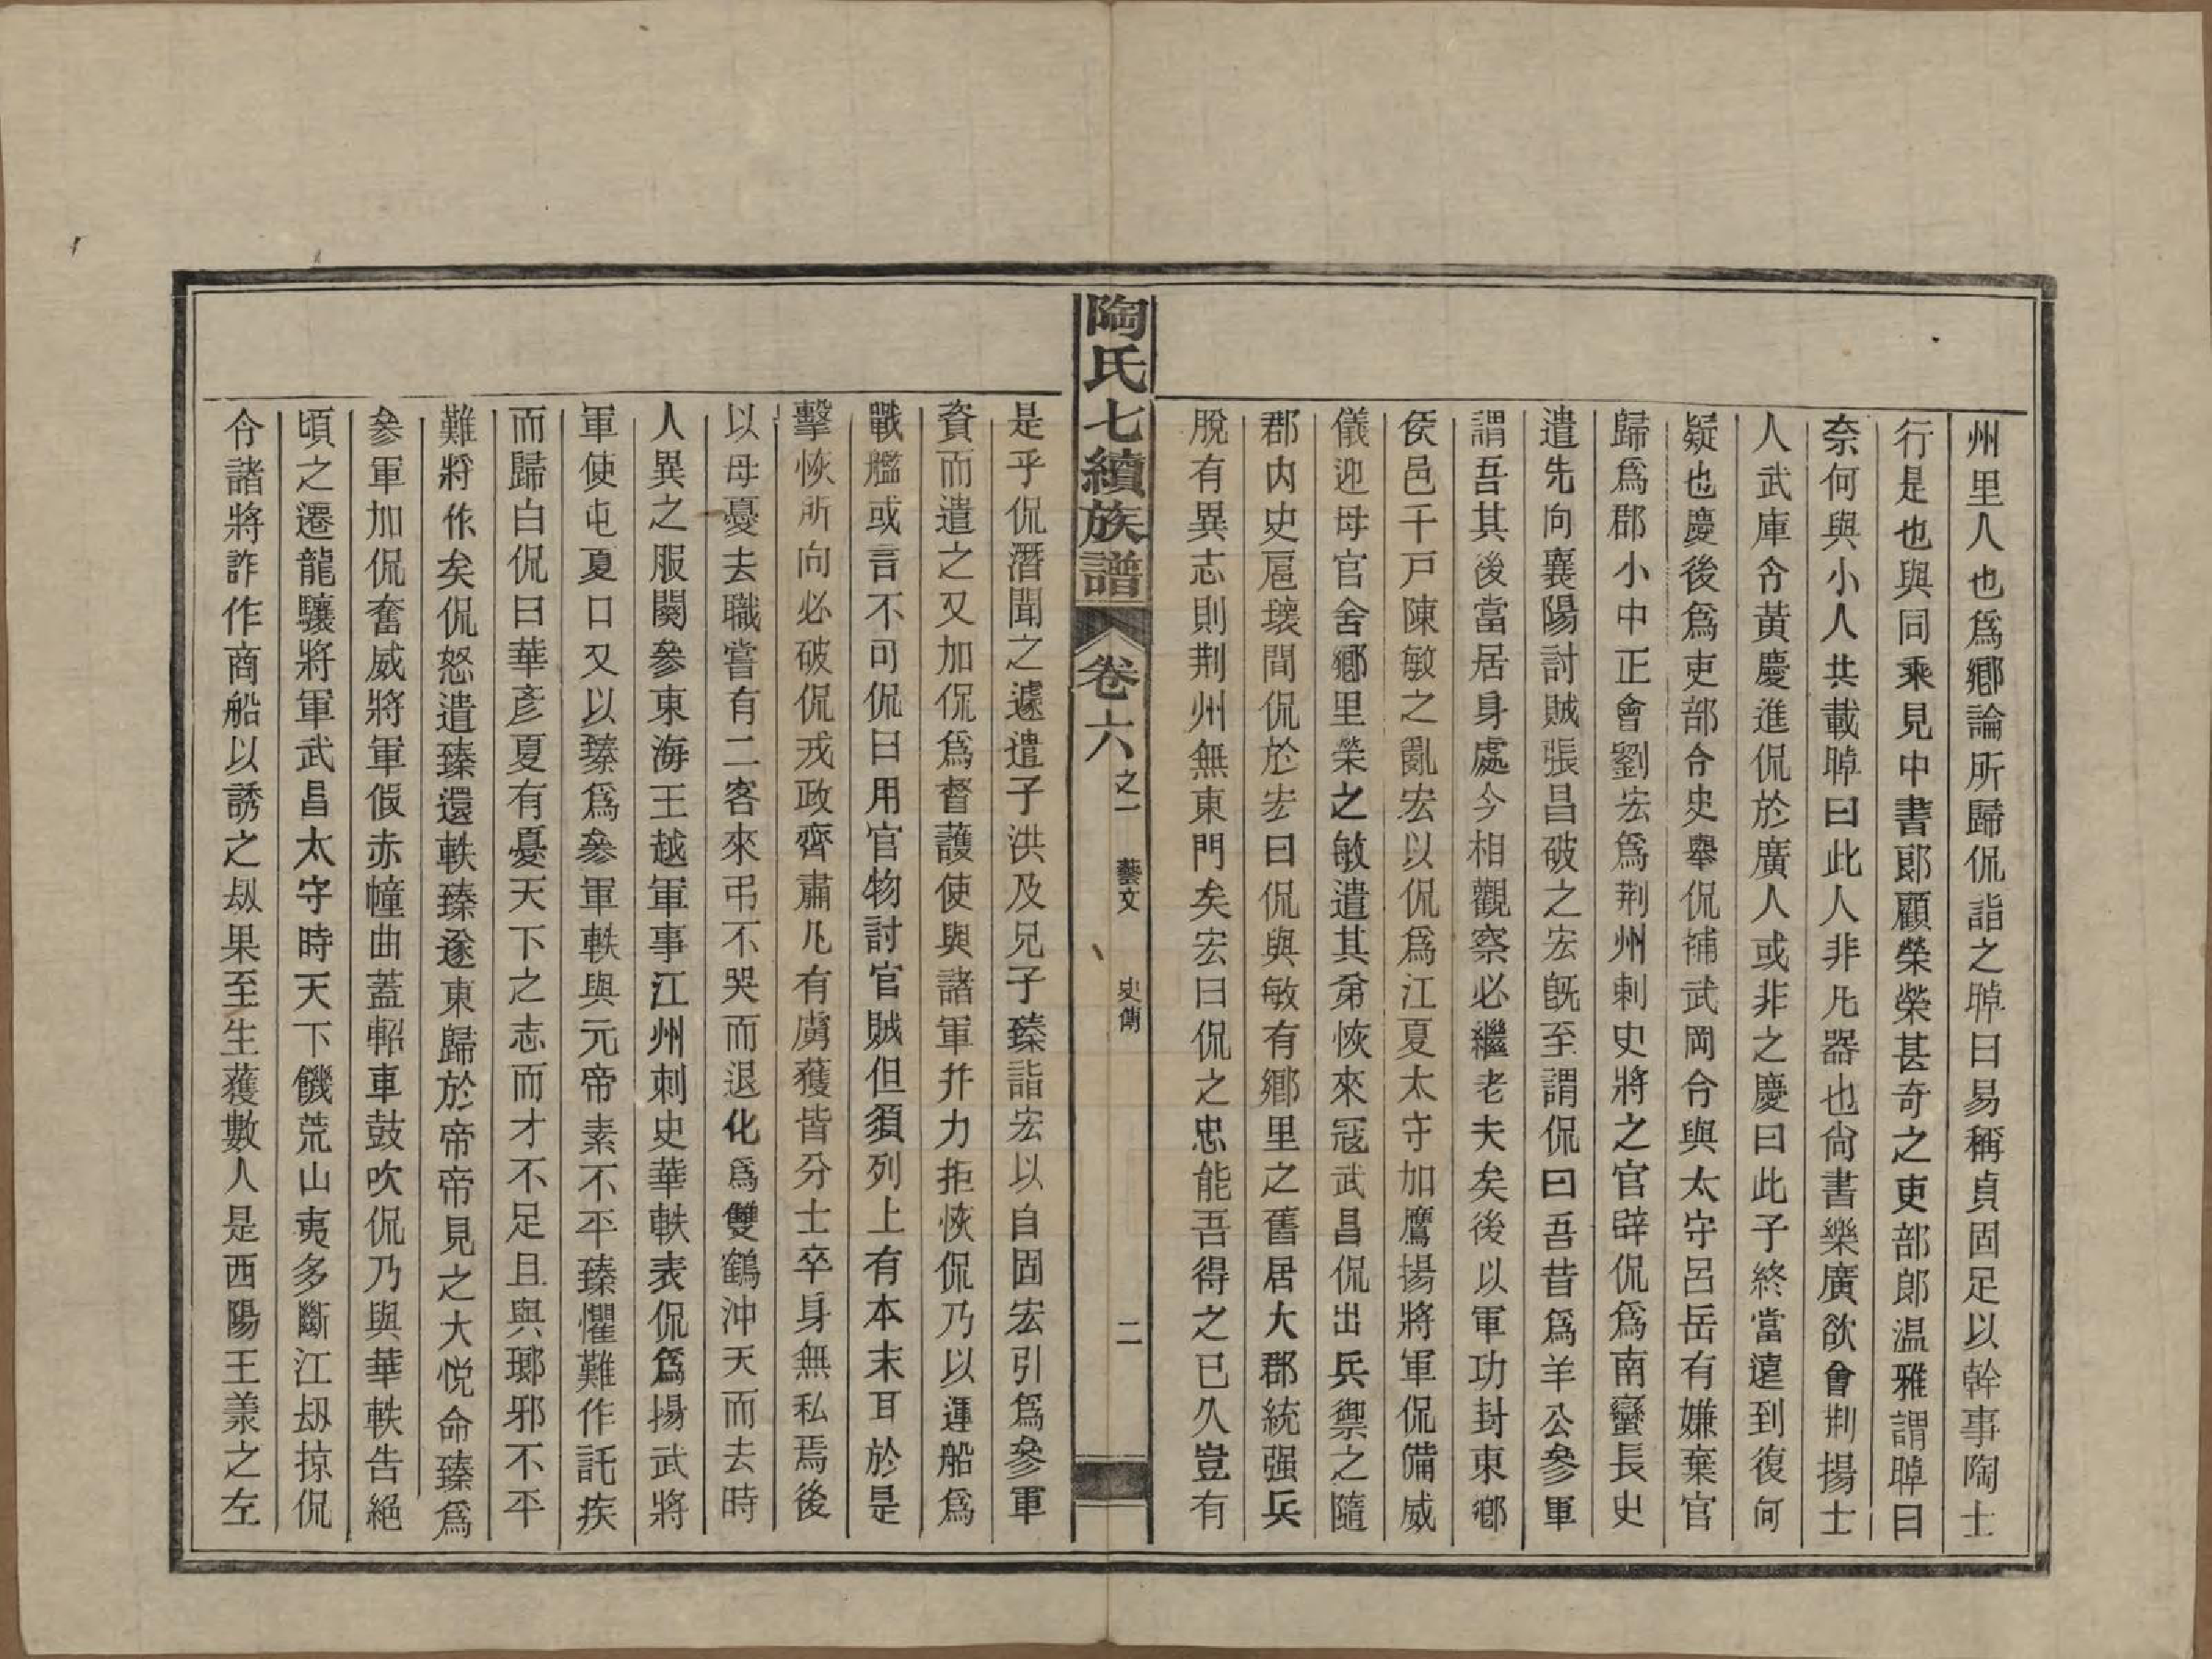 州里人也爲鄉論所歸侃詣之晫曰易稱貞固足以幹事陶士
行是也與同乘見中書郎顧榮榮甚奇之吏部郎温雅謂晫曰
奈何與小人共載晫曰此人非凡器也尙書樂廣欲會荆揚士
人武庫令黃慶進侃於廣人或非之慶曰此子終當遠到復何
疑也慶後爲吏部令史舉侃補武岡令與太守呂岳有嫌棄官
歸爲郡小中正會劉宏爲荆州刺史將之官辟侃爲南蠻長史
遣先向襄陽討賊張昌破之宏旣至謂侃曰吾昔爲羊公參軍
謂吾其後當居身處今相觀察必繼老夫矣後以軍功封東鄉
侯邑千戸陳敏之亂宏以侃爲江夏太守加鷹揚將軍侃備威
儀迎母官舍鄉里榮之敏遣其弟恢來寇武昌侃出兵禦之隨
郡內史扈壞間侃於宏曰侃與敏有鄉里之舊居大郡統强兵
脫有異志則荆州無東門矣宏曰侃之忠能吾得之已久豈有
陶氏七續族譜 卷六之一 藝文 史傳 二
是乎侃潛聞之遽遣子洪及兄子臻詣宏以自固宏引爲參軍
資而遣之又加侃爲督護使與諸軍幷力拒恢侃乃以運船爲
戰艦或言不可侃曰用官物討官賊但須列上有本末耳於是
擊恢所向必破侃戎政齊肅凡有虜獲皆分士卒身無私焉後
以母憂去職嘗有二客來弔不哭而退化爲雙鶴沖天而去時
人異之服闋參東海王越軍事江州刺史華軼表侃爲揚武將
軍使屯夏口又以臻爲參軍軼與元帝素不平臻懼難作託疾
而歸白侃曰華彥夏有憂天下之志而才不足且與瑯邪不平
難將作矣侃怒遣臻還軼臻遂東歸於帝帝見之大悅命臻爲
參軍加侃奮威將軍假赤幢曲蓋軺車鼓吹侃乃與華軼告絕
頃之遷龍驤將軍武昌太守時天下饑荒山夷多斷江刼掠侃
令諸將詐作商船以誘之刼果至生獲數人是西陽王羕之左